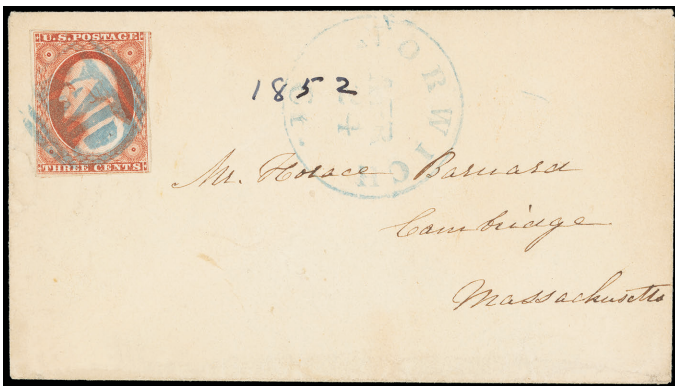 U.S. POSTAGE
THREE CENTS
NORWICH
24
1852
Mr. Horace Barnard
Cambridge
Massachusetts